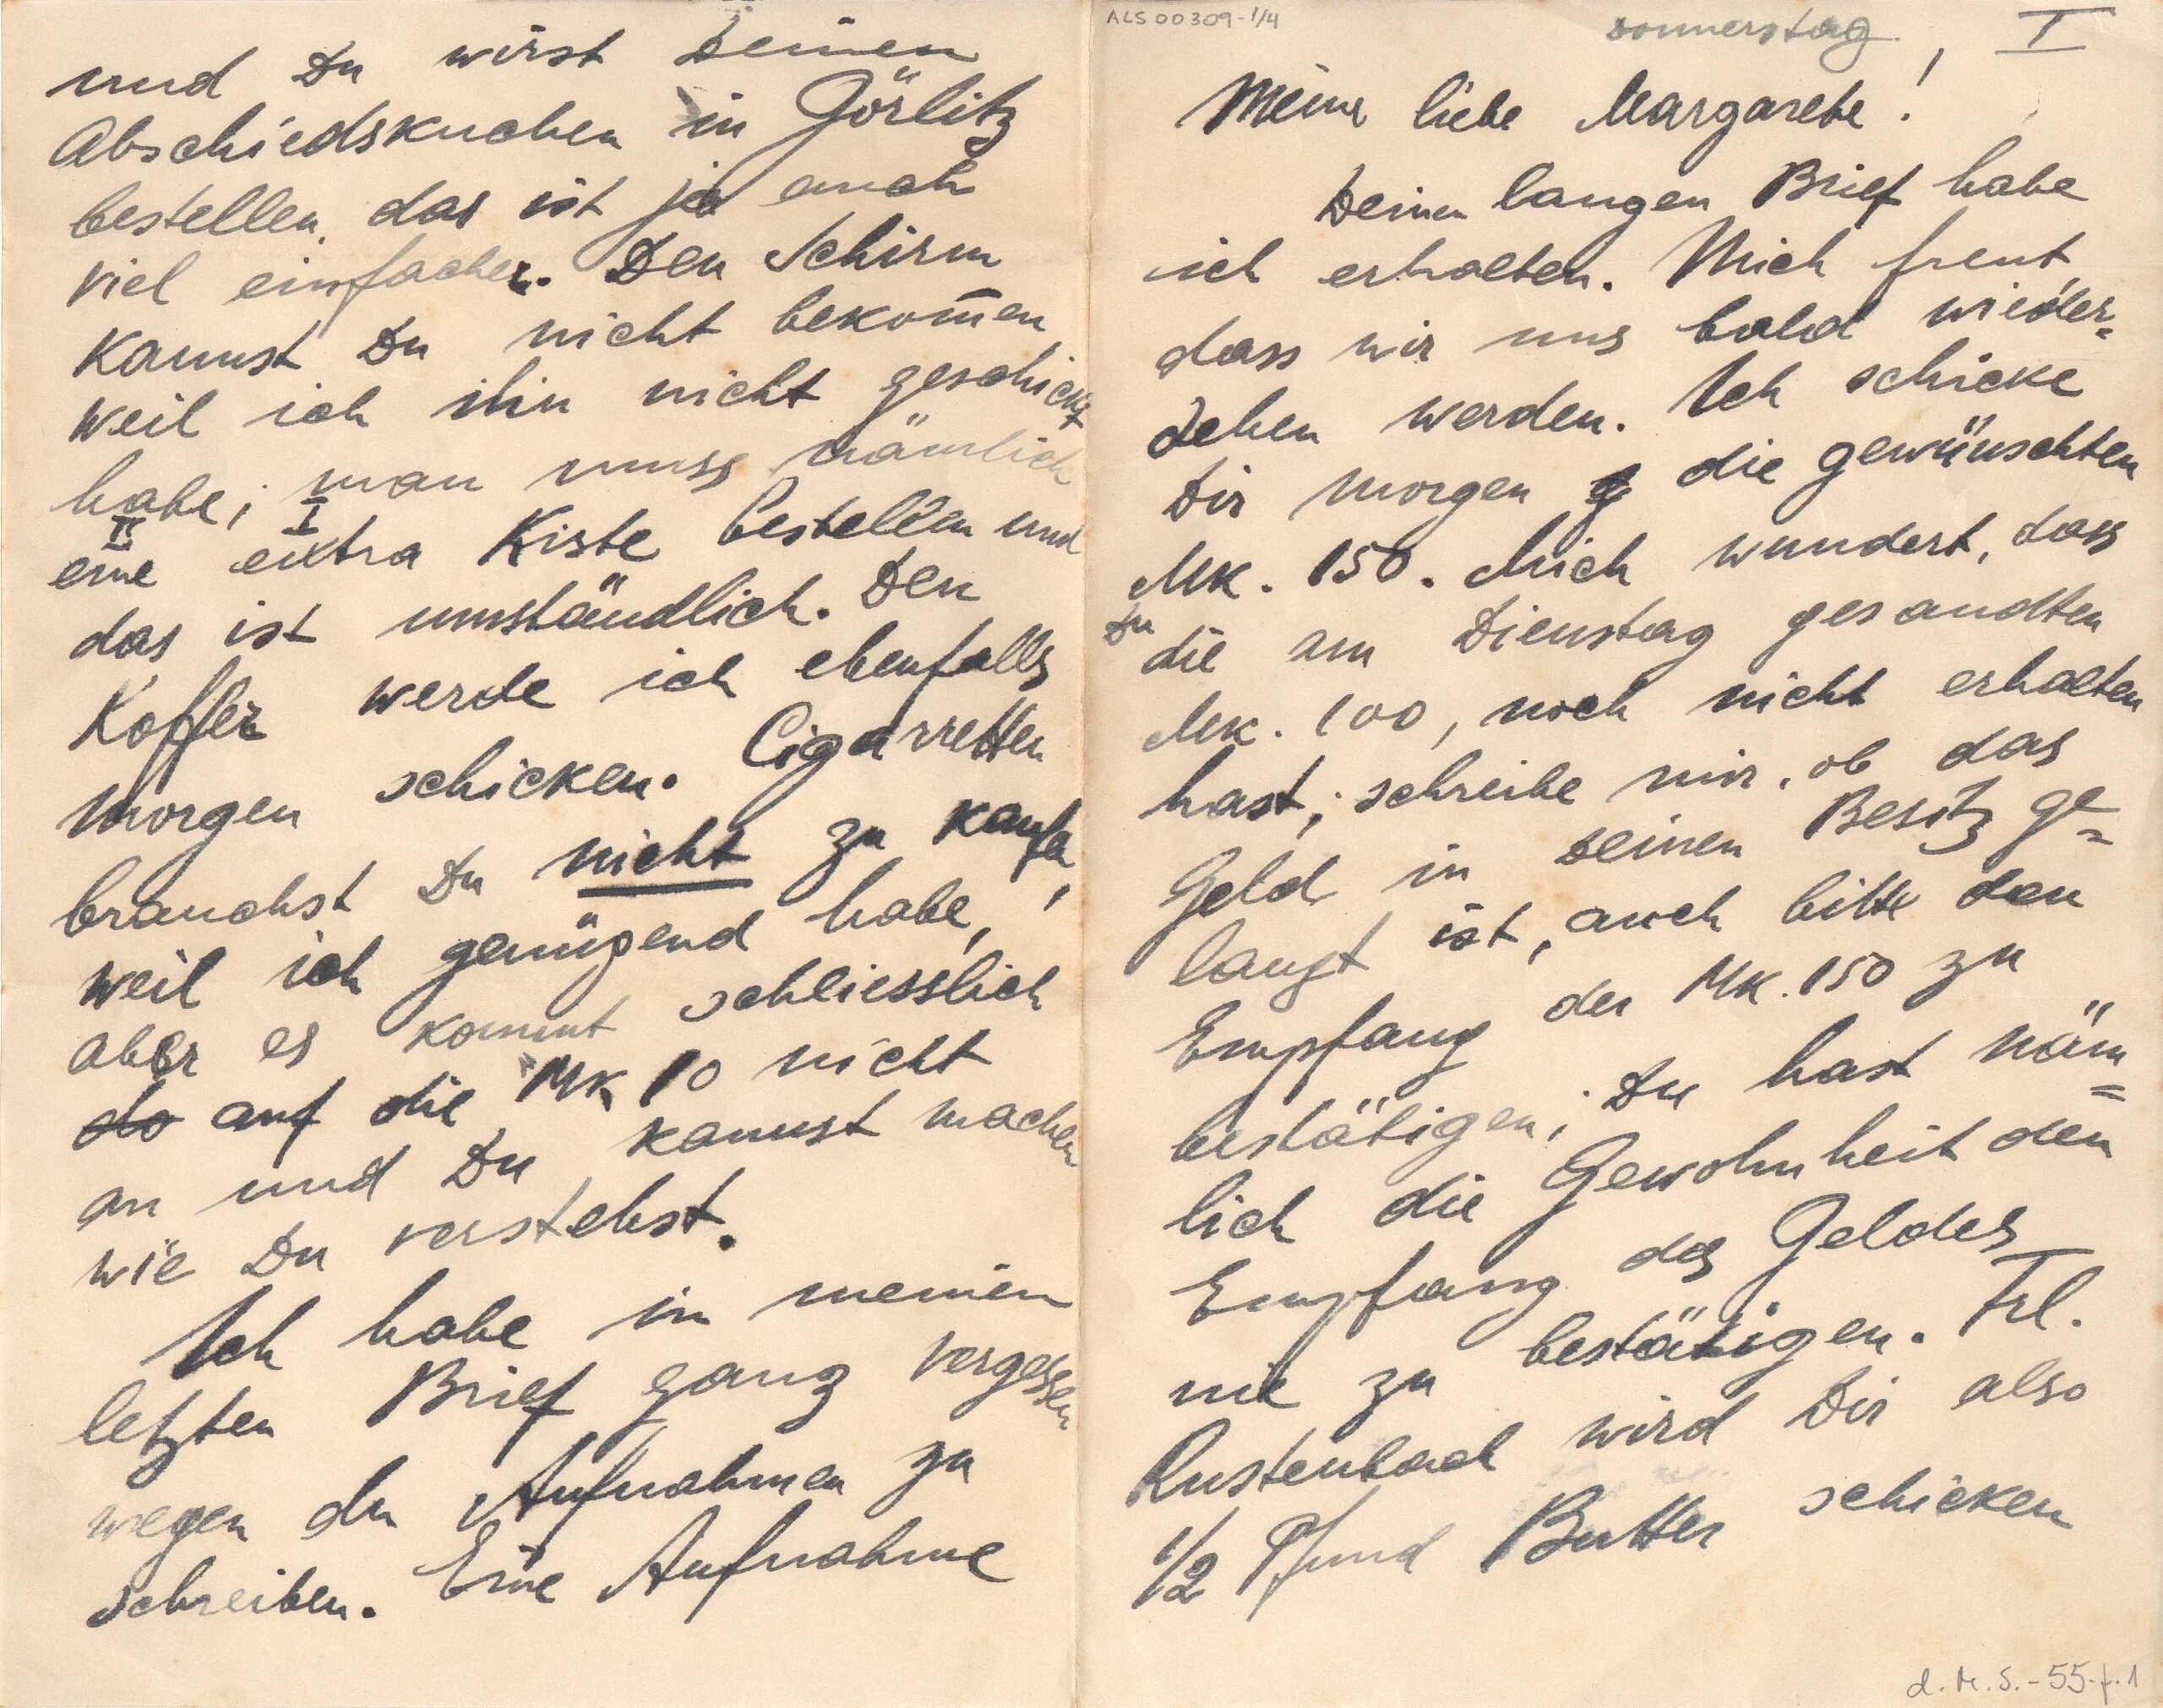 ALS 00309-1/4
Donnerstag, I
Meine liebe Margarete!
Deinen langen Brief habe
ich erhalten. Mich freut
dass wir uns bald wieder=
sehen werden. Ich schicke
Dir morgen die gewünschten
Mk. 150. Mich wundert, dass
Du
die am Dienstag gesandten
Mk. 100, noch nicht erhalten
hast; schreibe mir, ob das
Geld in Deinen Besitz ge=
langt ist, auch bitte den
Empfang der Mk. 150 zu
bestätigen; Du hast näm=
lich die Gewohnheit den
Empfang des Geldes
nie zu bestätigen. Frl.
Rustenbach wird Dir also
1/2 Pfund Butter schicken
d.M.S.-55-f.1
und Du wirst Deinen
Abschiedskuchen in Görlitz
bestellen, das ist ja auch
viel einfacher. Den Schirm
kannst Du nicht bekom̅en
weil ich ihn nicht geschickt
habe; man muss nämlich
II I
eine extra Kiste bestellen und
das ist umständlich. Den
Koffer werde ich ebenfalls
morgen schicken. Cigarretten
brauchst Du nicht zu kaufen,
weil ich genügend habe,
aber es kommt schliesslich
do auf die Mk 10 nicht
an und Du kannst machen
wie Du verstehst.
Ich habe in meinen
letzten Brief ganz vergessen
wegen den Aufnahmen zu
schreiben. Eine Aufnahme